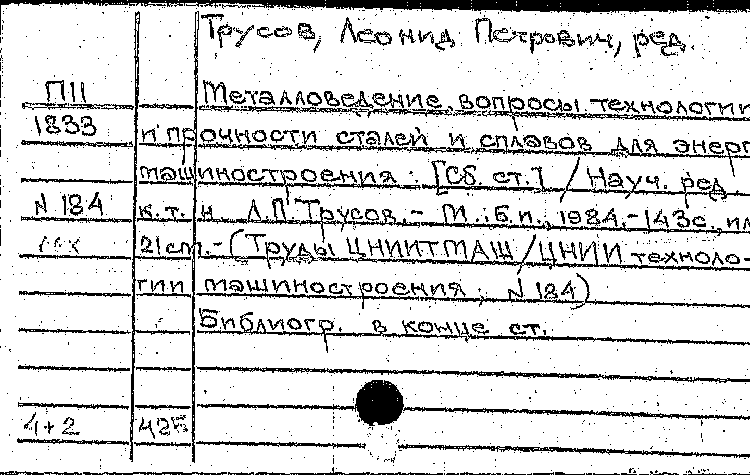 Трусов, Леонид Петрович, ред.
П11 Металловедение, вопросы технологии
1833 и прочности сталей и сплавов для энерг
машиностроения : [Сб. ст.] / Науч. ред
N 184 к.т.н Л.П. Трусов. - М. : б.и., 1984. - 143с., ил
21 см. - (Труды ЦНИИТМАШ / ЦНИИ техноло-
гии машиностроения ; N 184)
Библиогр. в конце ст.
4+2 425